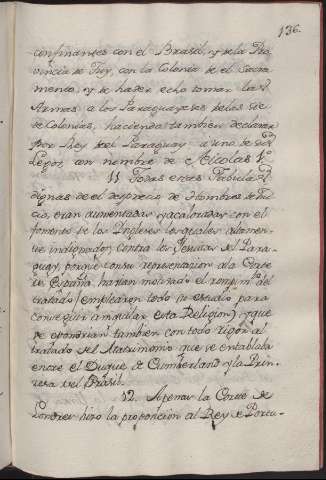 136.
confinantes con el Brasil, y de la Pro-
vincia de Tuy, con la Colonia de el Sacra-
mento, y de haver echo tomar las
Armas a los Paraguayeses de las sie-
te Colonias, haciendo tambien declarar
por Rey del Paraguay a uno de sus
Legos, con nombre de Nicolas 1º
11 Todas estas Fabulas
dignas de el desprecio de Hombres de Jui-
cio, eran aumentadas y acaloradas con el
fomento de los Ingleses los quales altamen-
te indignados contra los Jesuitas del Para-
guay, porque con su representacion a la Corte
de España, havian motivado el rompimto del
tratado, emplearon todo su estudio para
conseguir aniquilar esta Religion, y que
se opondrian tambien con todo rigor al
tratado del Matrimonio que se entablaba
entre el Duque de Cumberland y la Prin-
cesa del Brasil.
12. Apenas la Corte de
Londres hizo la proposicion al Rey de Portu-